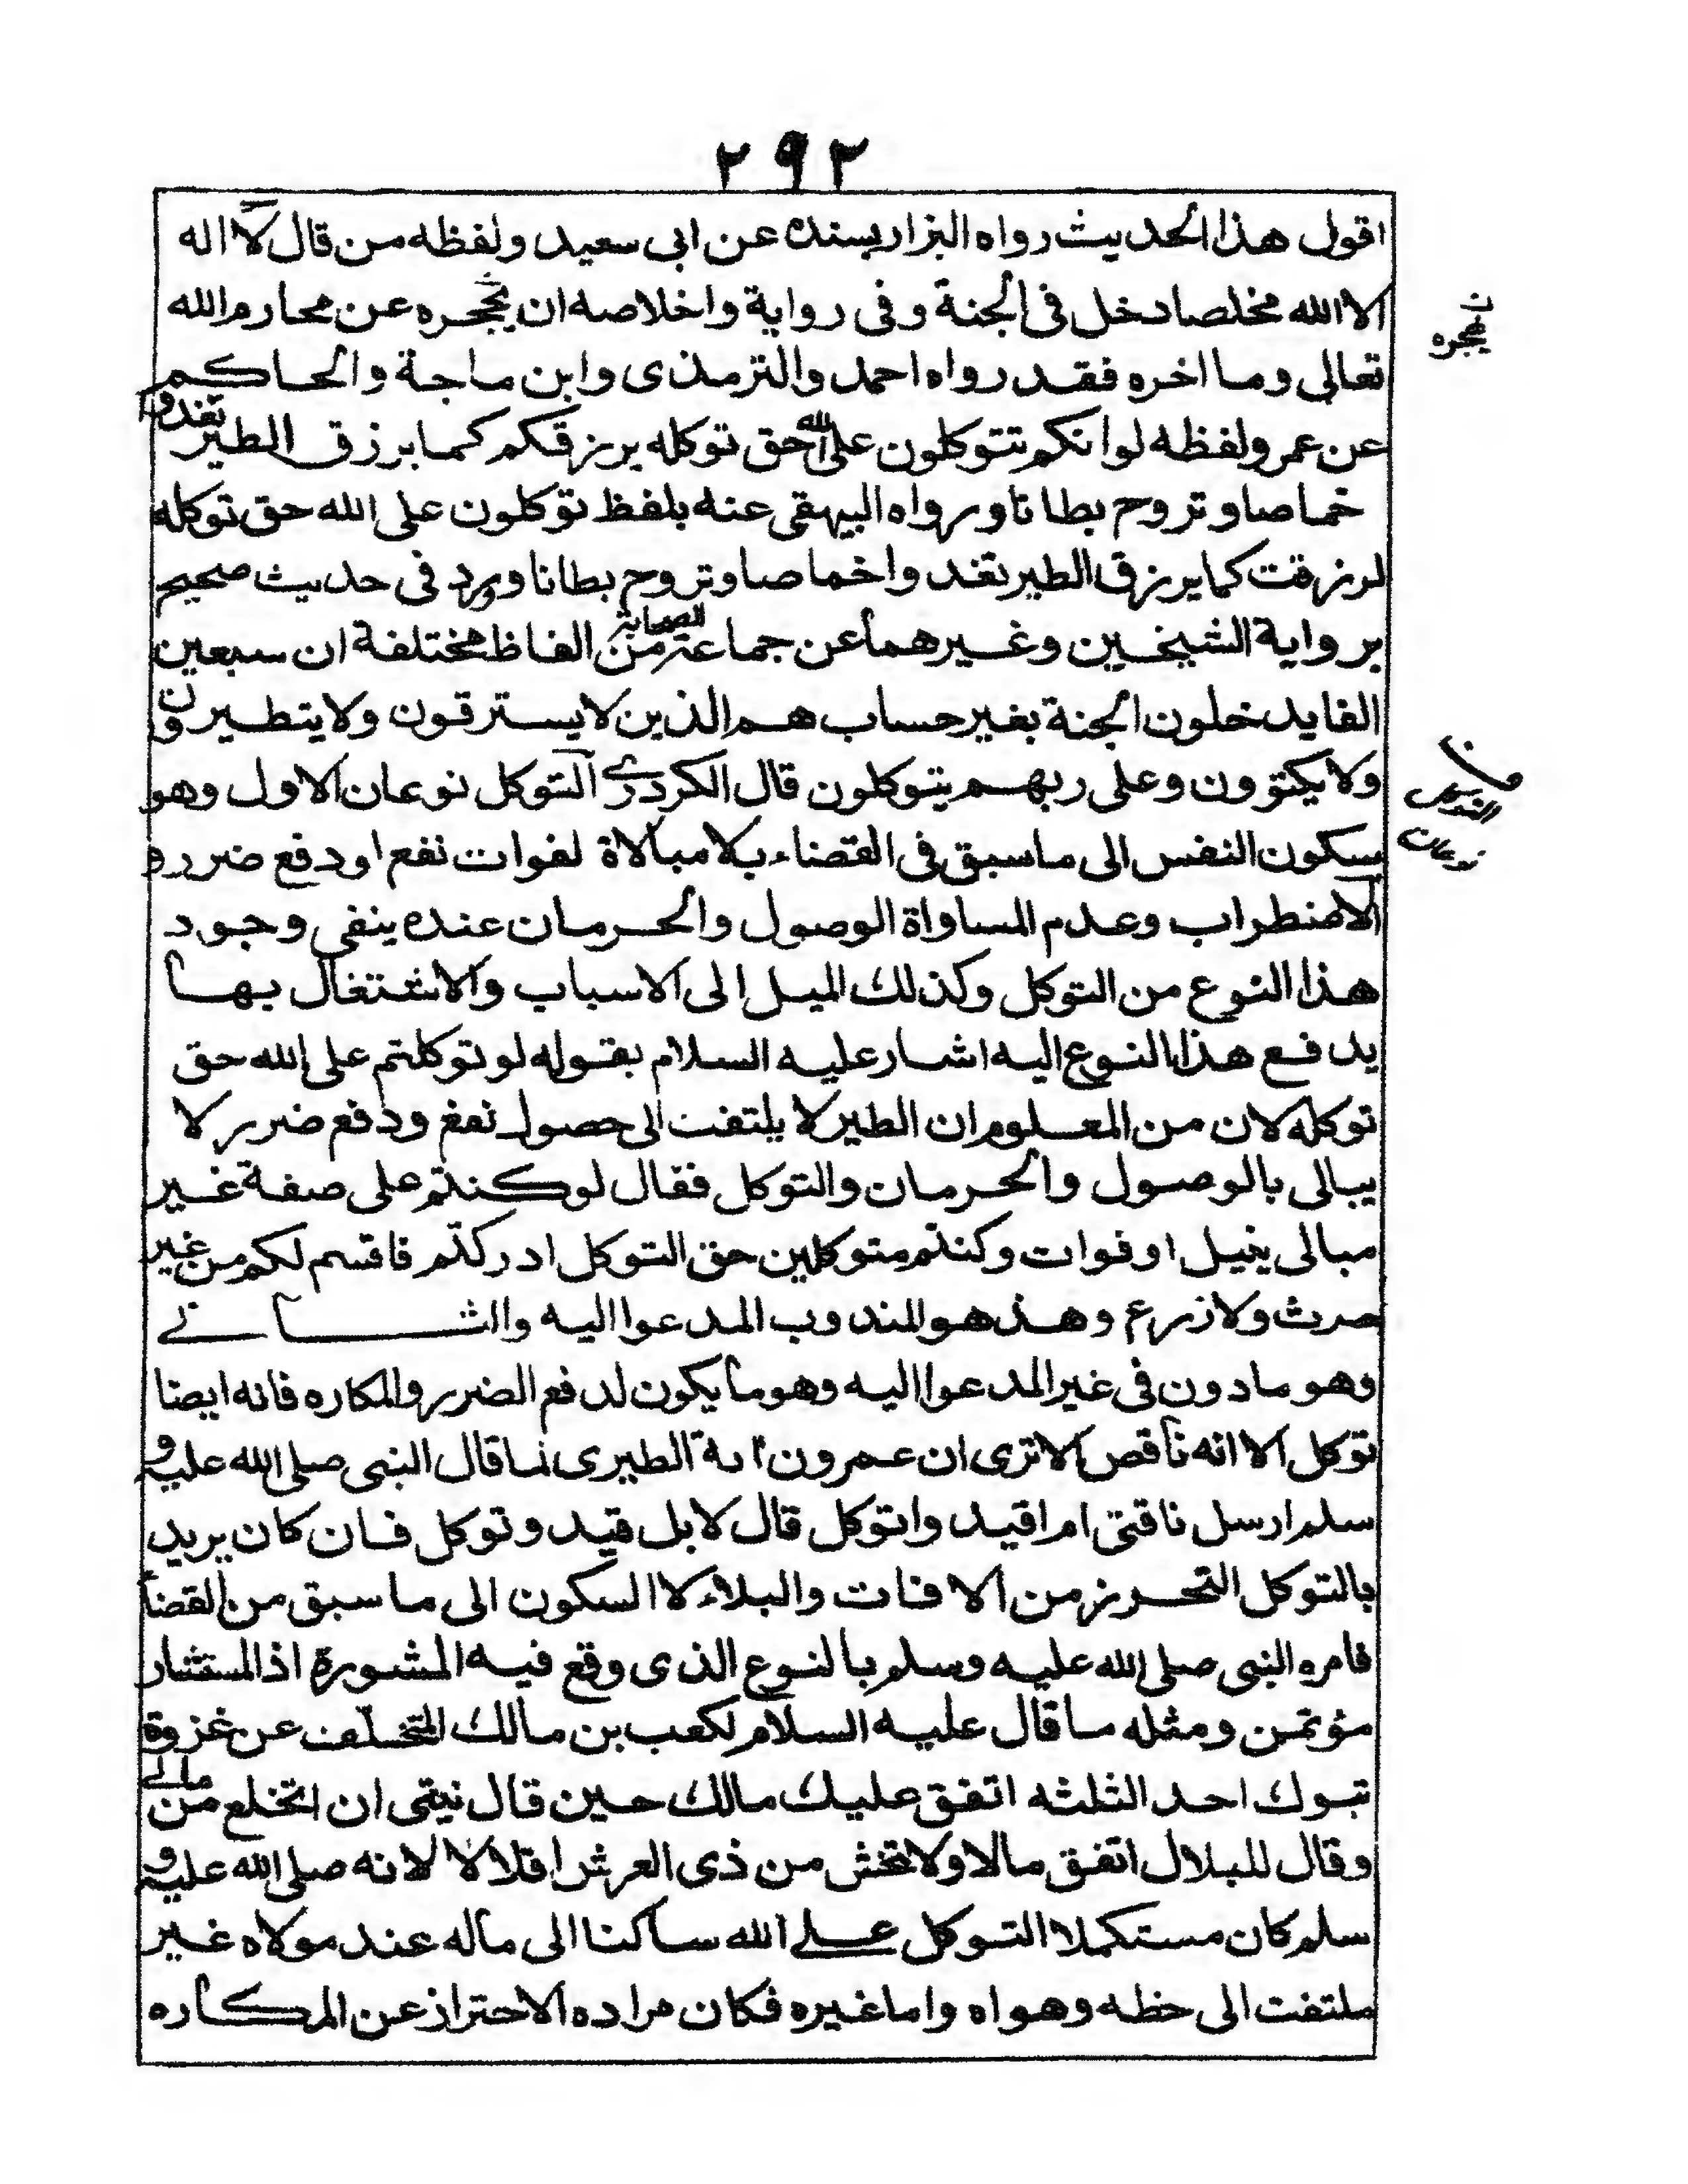 ٢٩٢
اقول هذا الحديث رواه البزار بسنده عن ابى سعيد ولفظه من قال لا اله
الا الله مخلصا دخل فى الجنة وفى رواية واخلاصه ان يحجره عن محارم الله
يحجره
تعالى وما اخره فقد رواه احمد والترمذى وابن ماجة والحاكم
عن عمر ولفظه لو انكم تتوكلون على الله حق توكله يرزقكم كما يرزق الطير تغدوا
خماصا وتروح بطانا ورواه البيهقى عنه بلفظ توكلون على الله حق توكله
لرزقت كما يرزق الطير تغدوا خماصا وتروح بطانا وورد فى حديث صحيح
برواية الشيخين وغيرهما عن جماعة من الصحابة الفاظ مختلفة ان سبعين
الفا يدخلون الجنة بغير حساب هم الذين لا يسترقون ولا يتطيرون
ولا يكتوون وعلى ربهم يتوكلون قال الكردرى التوكل نوعان الاول وهو
نوعان
سكون النفس الى ما سبق فى القضاء بلا مبالاة لفوات نفع او دفع ضرر و
الاضطراب وعدم المساواة الوصول والحرمان عنده ينفى وجود
هذا النوع من التوكل وكذلك الميل الى الاسباب والاشتغال بها
يدفع هذا النوع اليه اشار عليه السلام بقوله لو توكلتم على الله حق
توكله لان من المعلوم ان الطير لا يلتفت الى حصول نفع ودفع ضرر لا
يبالى بالوصول والحرمان والتوكل فقال لو كنتم على صفة غير
مبالى بنيل او فوات وكنتم متوكلين حق التوكل ادركتم فاقسم لكم من غير
حرث ولا زرع وهذ هو المندوب المدعوا اليه والثانى
وهو مادون فى غير المدعوا اليه وهو ما يكون لدفع الضرر والمكاره فانه ايضا
توكل الا انه ناقص الا ترى ان عمرون اية الطيرى لما قال النبى صلى الله عليه و
سلم ارسل ناقتى ام اقيد واتوكل قال لا بل قيد وتوكل فان كان يريد
بالتوكل التحرز من الافات والبلاء لا السكون الى ما سبق من القضا
فامره النبى صلى الله عليه وسلم بالنوع الذى وقع فيه المشورة اذ المستشار
مؤتمن ومثله ما قال عليه السلام لكعب بن مالك المتخلف عن غزوة
تبوك احد الثلثه اتفق عليك مالك حين قال نيتى ان اتخلع من مالى
وقال للبلال اتفق مالا ولا تخش من ذى العرش اقلالا لانه صلى الله عليه و
سلم كان مستكملا التوكل على الله ساكنا الى ماله عند مولاه غير
ملتفت الى حظه وهواه واما غيره فكان مراده الاحتراز عن المكاره